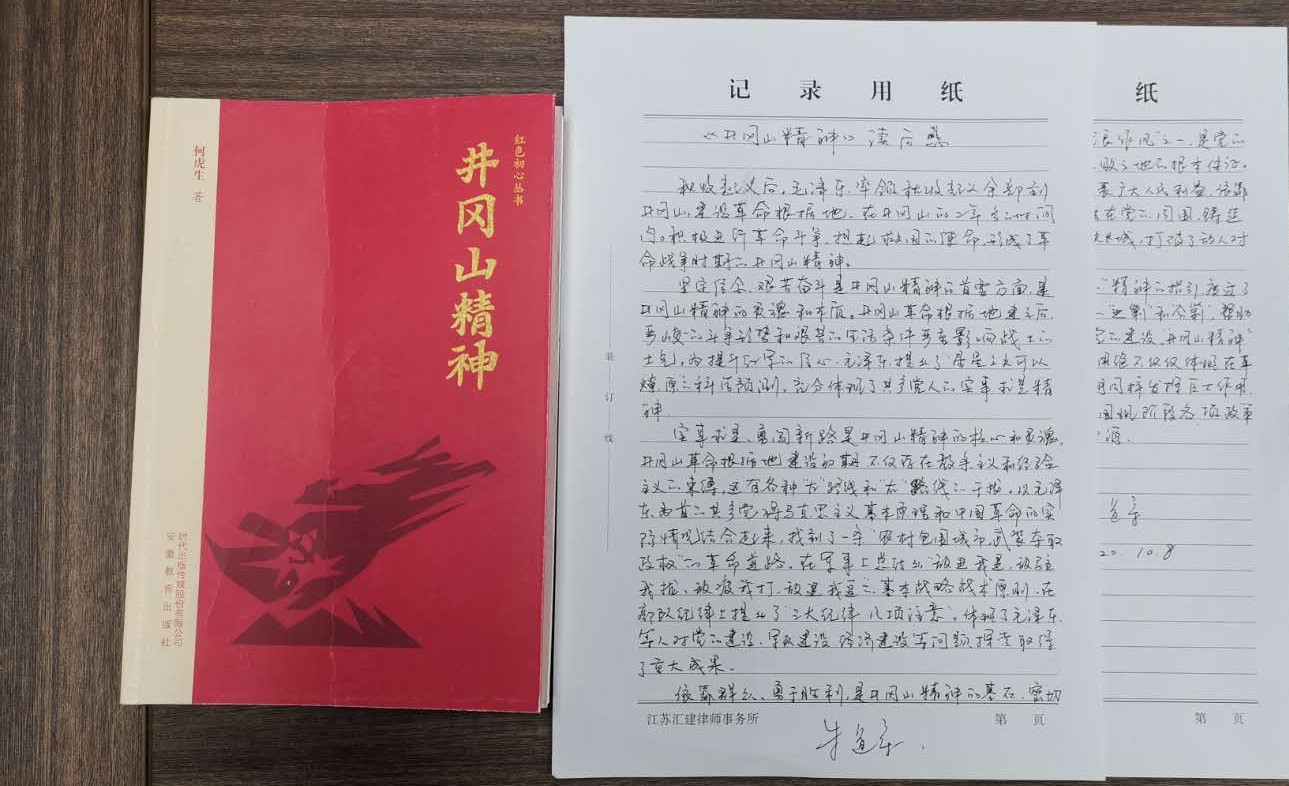 红色初心丛书
井冈山精神
何虎生 著
时代出版传媒股份有限公司
安徽教育出版社
记录用纸
《井冈山精神》读后感
秋收起义后，毛泽东率领秋收起义余部到
井冈山，建设革命根据地，在井冈山的二年多的时间
内。积极进行革命斗争，担起救国的使命，形成了革
命战争时期的井冈山精神。
坚定信念、艰苦奋斗是井冈山精神的首要方面，是
井冈山精神的灵魂和本质。井冈山革命根据地建立后，
严峻的斗争形势和艰苦的生活条件严重影响战士的
士气，为提升红军的信心，毛泽东提出了"星星之火可以
燎原"之科学预测，充分体现了共产党人的实事求是精
神。
实事求是、勇闯新路是井冈山精神的核心和灵魂。
井冈山革命根据地建设初期不仅存在教条主义和经验
主义的束缚，还有各种"左"路线和"右"路线的干扰，以毛泽
东为首的共产党将马克思主义基本原理和中国革命的实
际情况结合起来，找到了一条"农村包围城市，武装夺取
政权"的革命道路。在军事上总结出"敌进我退，敌驻
我扰，敌疲我打，敌退我追"之基本战略战术原则，在
部队纪律上提出了"三大纪律，八项注意"。体现了毛泽东
等人对党的建设、军队建设、经济建设等问题探索取得
了重大成果。
依靠群众、勇于胜利，是井冈山精神的基石，密切
装
订
线
江苏汇建律师事务所 第 页
纸
良作风之一，是党的
败之地的根本保证。
广大人民利益，依靠
在党的周围，铸造
打破了敌人对
精神的指引，度过了
帮助
的建设，井冈山精神
不仅仅体现在革
同样发挥巨大作用，
阶段各项改革
源。
20.10.8
第 页